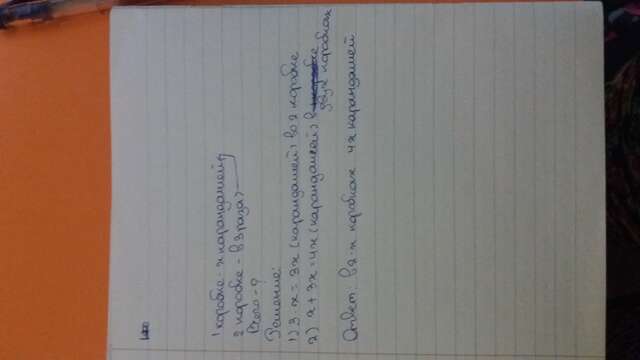 1 коробке - x карандашей
2 коробке - в 3 раза >
Всего - ?
Решение:
1) 3 · x = 3x (карандашей) во 2 коробке
2) x + 3x = 4x (карандашей) в двух коробках
Ответ: в 2-х коробках 4x карандашей